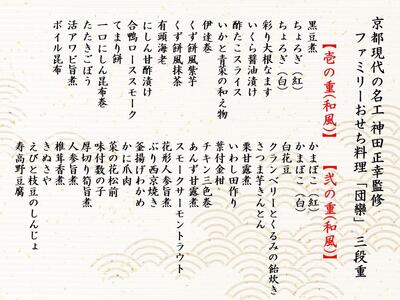 京都現代の名工 神田正幸監修
ファミリーおせち料理「団欒」 三段重
【壱の重(和風)】
黒豆煮
ちょろぎ(紅)
ちょろぎ(白)
彩り大根なます
いくら醤油漬け
酢たこスライス
いかと青菜の和え物
伊達巻
くず餅風紫芋
くず餅風抹茶
有頭海老
にしん甘酢漬け
合鴨ローススモーク
てまり餅
一口にしん昆布巻
たたきごぼう
活アワビ旨煮
ボイル昆布
【弐の重(和風)】
かまぼこ(紅)
かまぼこ(白)
クランベリーとくるみの飴炊き
白花豆
さつま芋きんとん
栗甘露煮
いわし田作り
葉付金柑
チキン三色巻
あんず甘露煮
スモークサーモントラウト
花形人参旨煮
ぶり西京焼き
釜揚げわかめ
かに爪肉
味付数の子
菜の花松前
厚切り筍旨煮
人参旨煮
椎茸香煮
きぬさや
えびと枝豆のしんじょ
寿高野豆腐